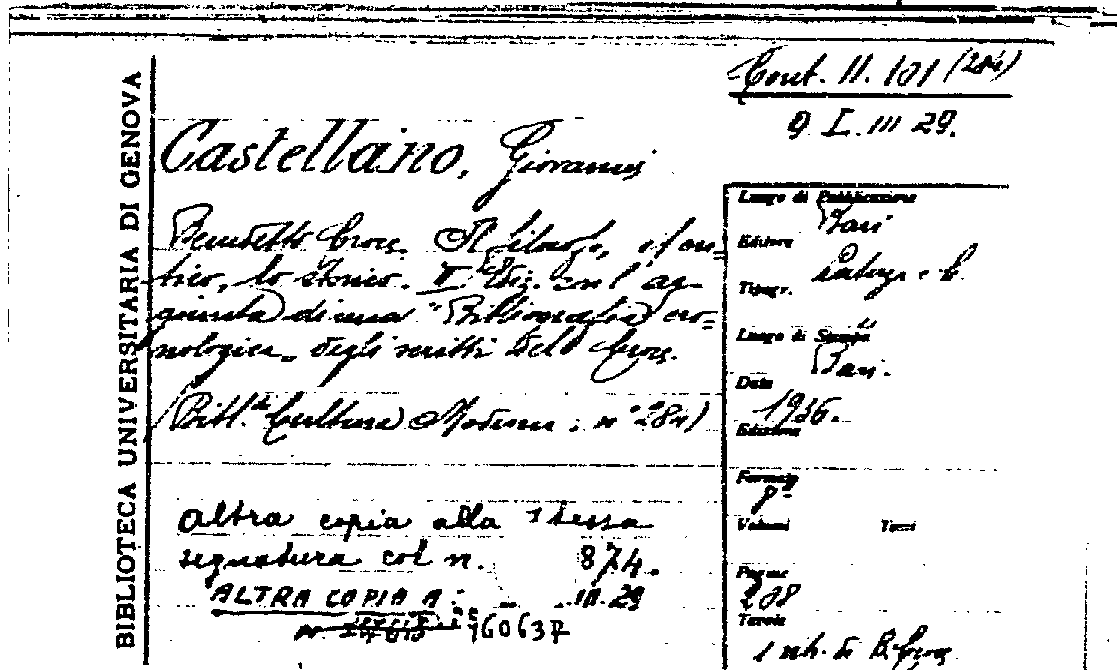 BIBLIOTECA UNIVERSITARIA DI GENOVA
Cont. II. 101 (284)
9 I. III 29.
Castellano, Giovanni
Benedetto Croce. Il filosofo, il cri=
tico, lo storico. II Ediz. con l'ag-
giunta di una "Bibliografia cro=
nologica" degli scritti del Croce.
(Bibl.ca Cultura Moderna. n° 284)
altra copia alla stessa
segnatura col n. 874.
ALTRA COPIA A: III.29
160637
Luogo di Pubblicazione
Bari
Editore
Laterza e C.
Tipogr.
id
Luogo di Stampa
Bari.
Data
1936.
Edizione
Formato
8°
Volumi Tomi
Pagine
208
Tavole
1 ritr. di B. Croce